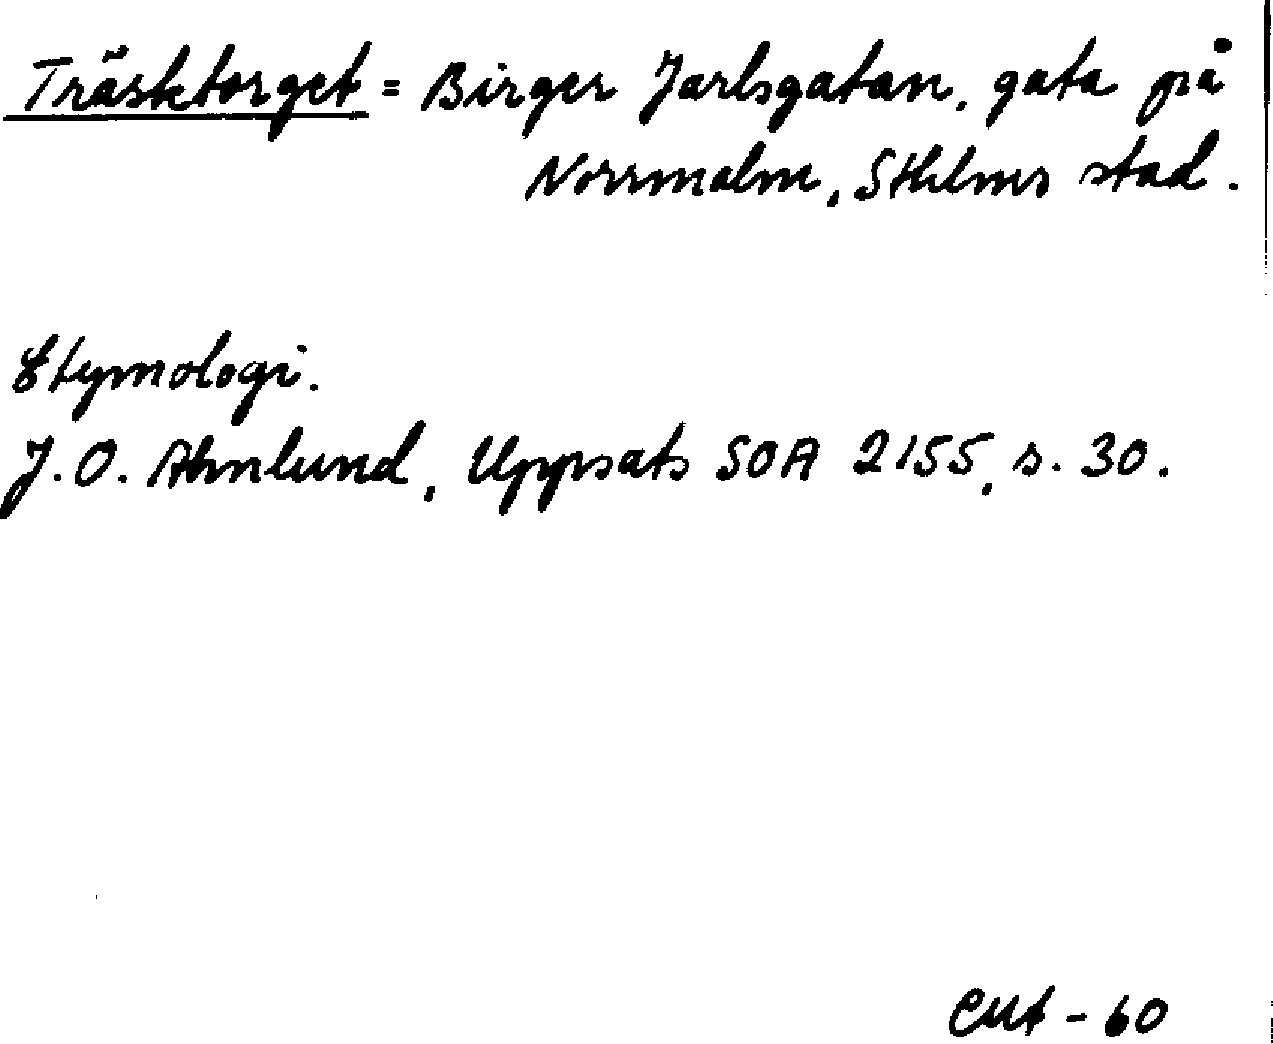 Träsktorget = Birger Jarlsgatan, gata på
Norrmalm, Sthlms stad.
Etymologi.
J.O. Almlund, Uppsats SOA 2155, s. 30.
- 60